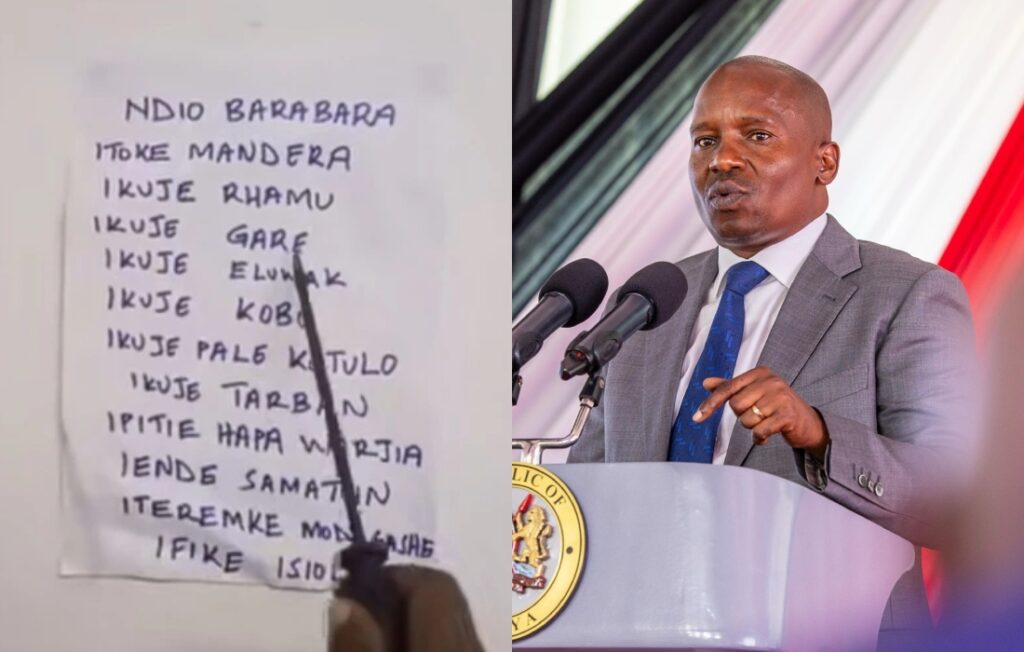 NDIO BARABARA
ITOKE MANDERA
IKUJE RHAMU
IKUJE GARE
IKUJE ELWAK
IKUJE
IKUJE PALE KUTULO
IKUJE TARBAN
IPITIE HAPA WARJIA
IENDE
ITEREMKE
IFIKE
LIC OF
YA